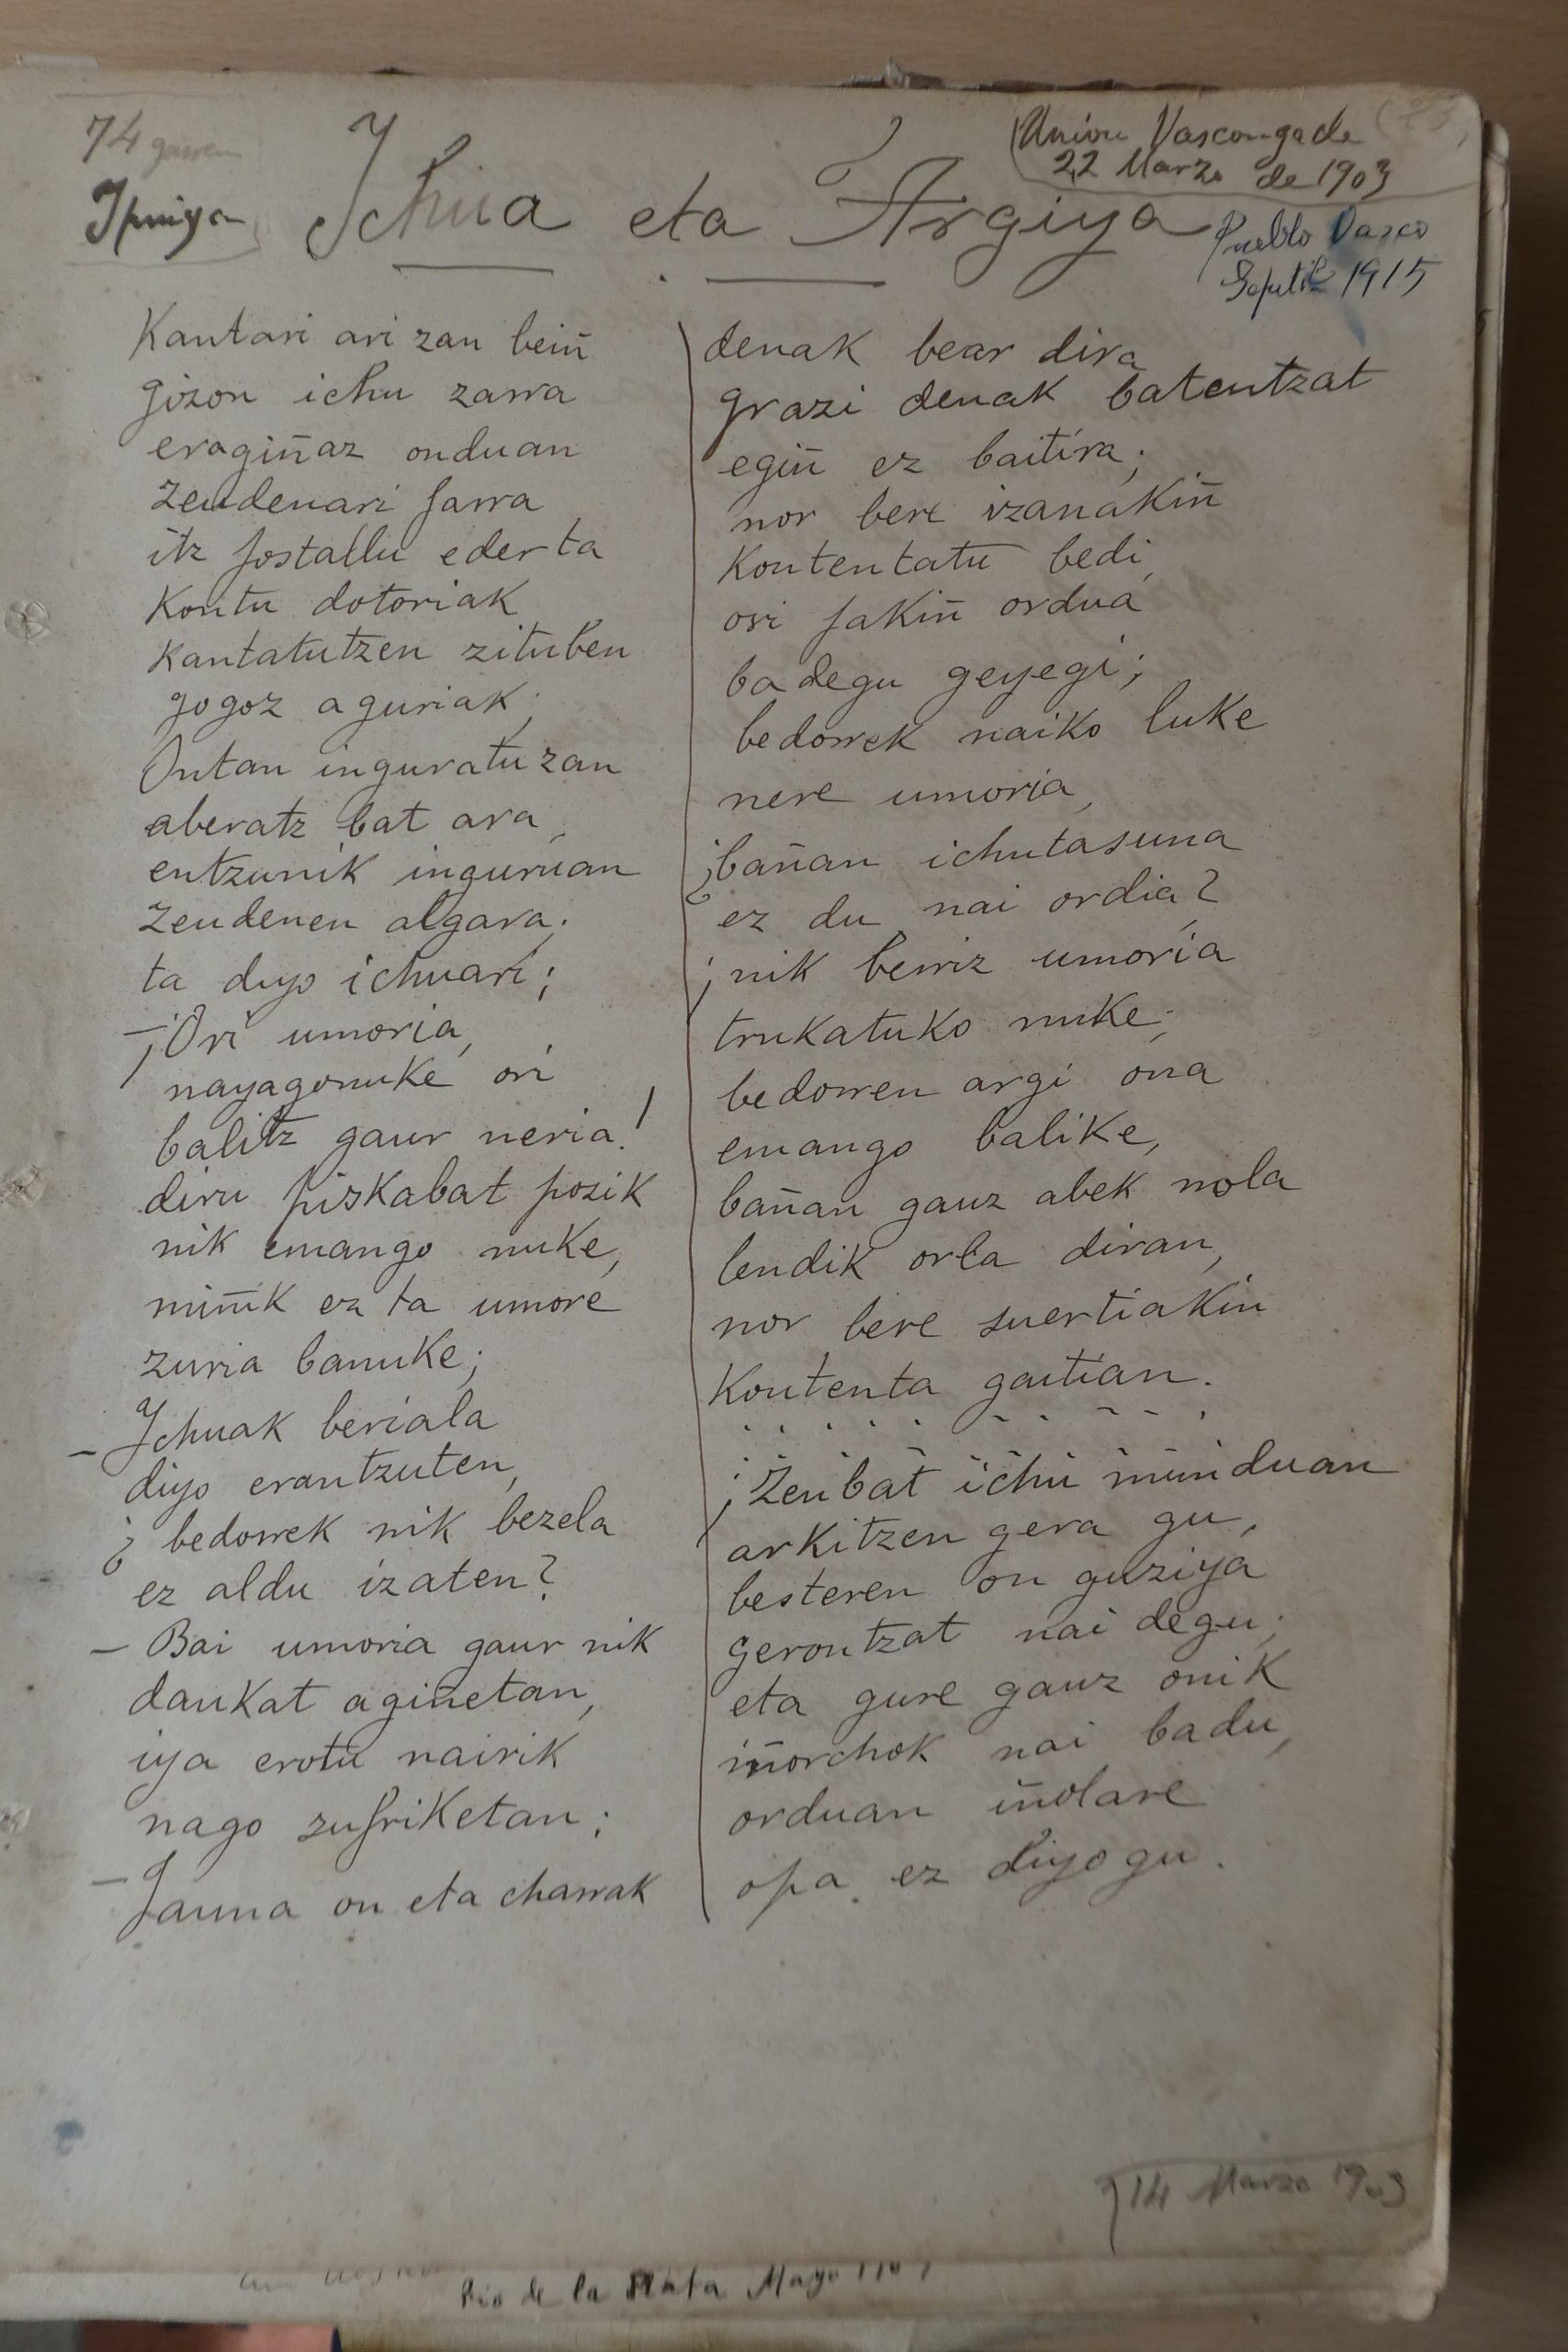 74 garren
Ipuiya
Ichua eta Argiya
(Union Vascongada
22 Marzo de 1903
Pueblo Vasco
Septbe 1915
Kantari ari zan beiñ
gizon ichu zarra
eragiñaz onduan
zeudenari farra
itz jostallu eder ta
kontu dotoriak
kantatutzen zituben
gogoz aguriak;
Ontan inguratu zan
aberatz bat ara,
entzunik inguruan
zeudenen algara;
ta diyo ichuari;
—¡Ori umoria,
nayago nuke ori
balitz gaur neria!
diru pizkabat pozik
nik emango nuke,
miñik ez ta umore
zuria banuke;
—Ichuak beriala
diyo erantzuten,
¿bedorrek nik bezela
ez aldu izaten?
—Bai umoria gaur nik
daukat agiñetan,
iya erotu nairik
nago zufriketan;
—Jauna on eta charrak
denak bear dira
grazi denak batentzat
egiñ ez baitira;
nor bere izanakiñ
kontentatu bedi,
ori jakiñ ordua
badegu geyegi;
bedorrek naiko luke
nere umoria,
¿bañan ichutasuna
ez du nai ordia?
¡nik berriz umoria
trukatuko nuke;
bedorren argi ona
emango balike,
bañan gauz abek nola
lendik orla diran,
nor bere suertiakin
kontenta gaitian.
. . . . . . . . . .
¡Zenbat ichu munduan
arkitzen gera gu,
besteren on guziya
gerontzat nai degu;
eta gure gauz onik
iñorchok nai badu,
orduan iñolare
opa ez diyogu.
14 Marzo 1903
Rio de la Plata Mayo